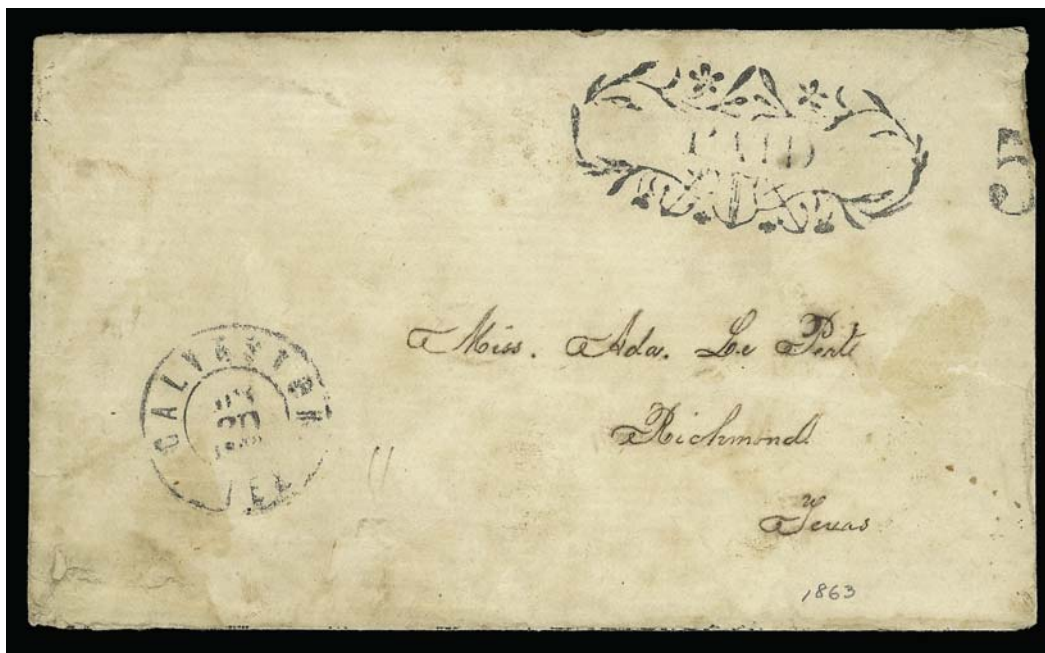 PAID
5
GALVESTON
TEX
Miss. Ada. Le Perte
Richmond
Texas
1863